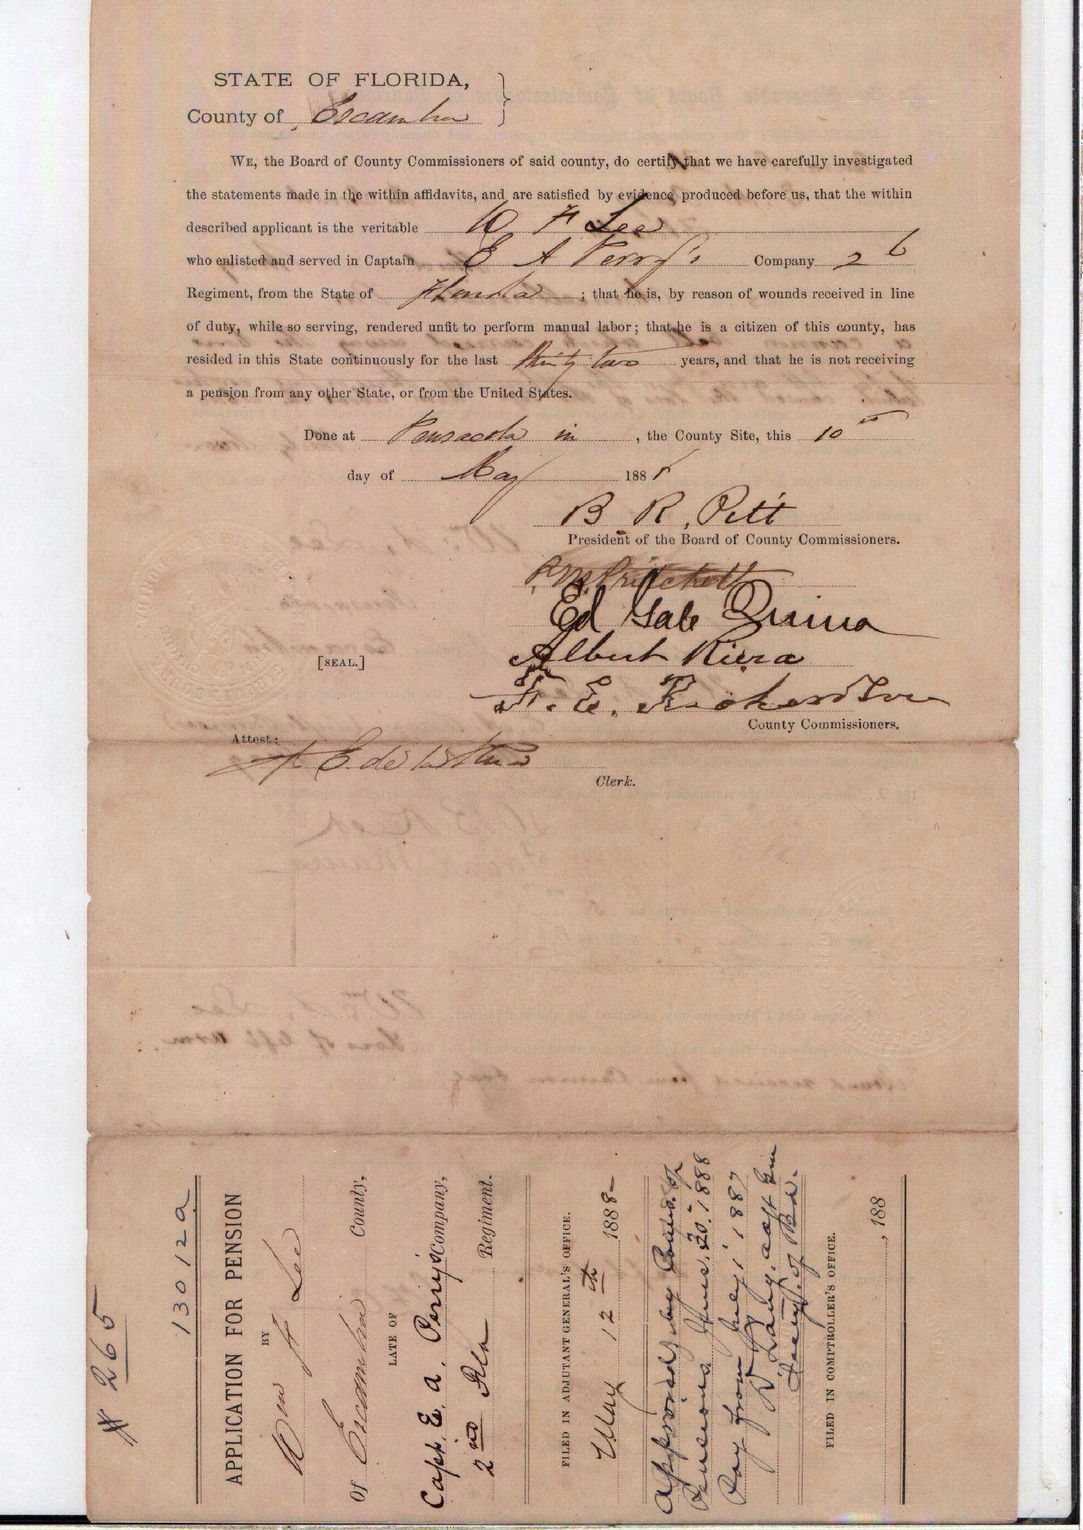 STATE OF FLORIDA,
County of Escambia
WE, the Board of County Commissioners of said county, do certify that we have carefully investigated
the statements made in the within affidavits, and are satisfied by evidence produced before us, that the within
described applicant is the veritable W F Lee
who enlisted and served in Captain E A Perry's Company 2
Regiment, from the State of Florida ; that he is, by reason of wounds received in line
of duty, while so serving, rendered unfit to perform manual labor; that he is a citizen of this county, has
resided in this State continuously for the last thirty two years, and that he is not receiving
a pension from any other State, or from the United States.
Done at Pensacola in , the County Site, this 10th
day of May 188
B R. Pitt
President of the Board of County Commissioners.
Pritchett
Ed Gale Quina
Albert Riera
F. E. Richardson
[SEAL.]
County Commissioners.
Attest:
Clerk.
# 265
13012a
APPLICATION FOR PENSION
BY
Wm F Lee
Of Escambia County,
LATE OF
Capt. E. A. Perry's Company,
2nd Fla Regiment.
FILED IN ADJUTANT GENERAL'S OFFICE.
May 12th 1888
Approved by Board of
Pensions June 20, 1888
Pay from July 1 1887
D Lang, Adjt Gen
Secy of Bd.
FILED IN COMPTROLLER'S OFFICE.
, 188